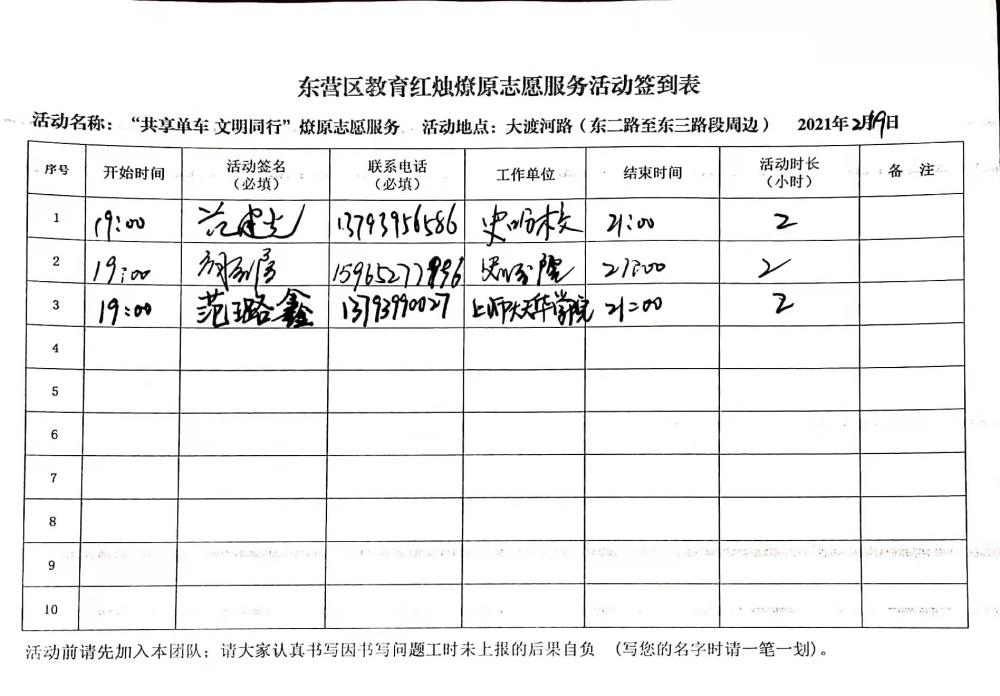 东营区教育红烛燎原志愿服务活动签到表
活动名称：“共享单车 文明同行”燎原志愿服务 活动地点：大渡河路（东二路至东三路段周边） 2021年2月19日
序号 开始时间 活动签名（必填） 联系电话（必填） 工作单位 结束时间 活动时长（小时） 备 注
1 19:00 13793956586 21:00 2
2 19:00 21:00 2
3 19:00 范璐鑫 13793990027 上师大天华学院 21:00 2
4
5
6
7
8
9
10
活动前请先加入本团队；请大家认真书写因书写问题工时未上报的后果自负 （写您的名字时请一笔一划）。